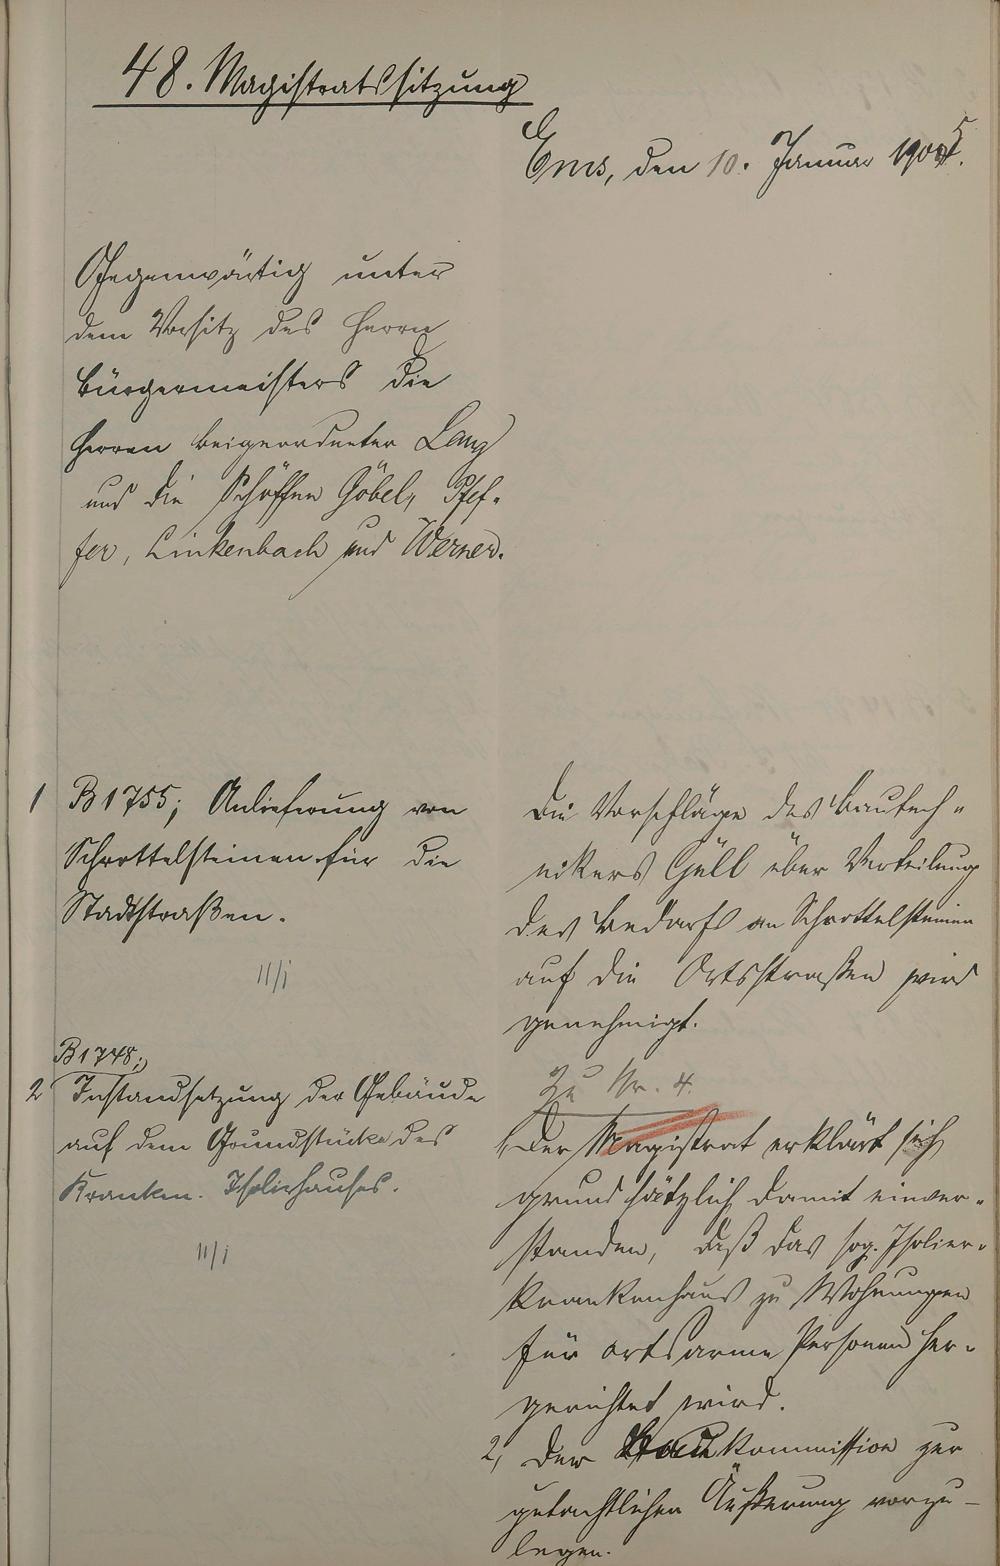 48. Magistratssitzung
Ems, den 10. Januar 1905.
Gegenwärtig unter
dem Vorsitz des Herrn
Bürgermeisters die
Herren Beigeordneter Lang
und die Schöffen Göbel, Pfef-
fer, Linkenbach und Werner.
1 B 1755; Anlieferung von
Schrottelsteinen für die
Stadtstraßen.
11/i
B 1748;
2 Instandsetzung der Gebäude
auf dem Grundstücke des
Kranken-Isolirhauses.
11/i
Die Vorschläge des Bautech-
nikers Güll über Verteilung
des Bedarfs an Schrottelsteinen
auf die Ortsstraßen wird
genehmigt.
Zu Nr. 4.
1, Der Magistrat erklärt sich
grundsätzlich damit einver-
standen, daß das sog. Isolier-
krankenhaus zu Wohnungen
für ortsarme Personen her-
gerichtet wird.
2, Der Baukommission zur
gutachtlichen Äußerung vorzu-
legen.